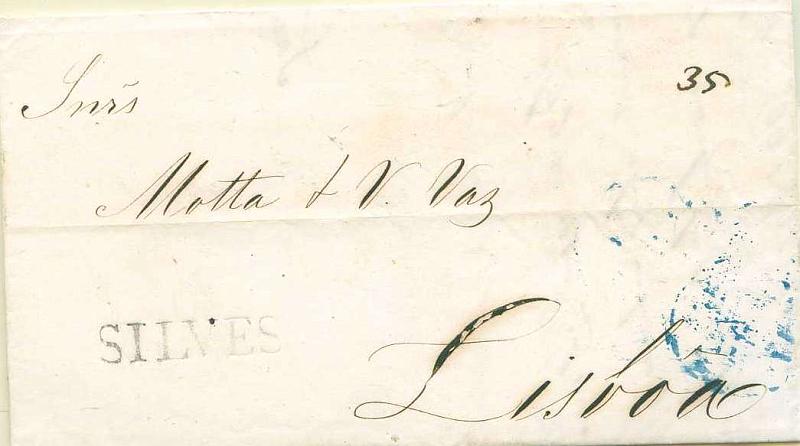 Snrs
35
Motta & V. Vaz
SILVES
Lisbôa